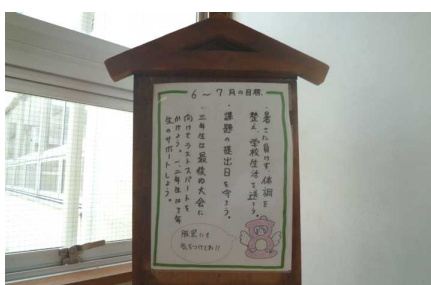 6～7月の目標
・暑さに負けず、体調を
整え、学校生活を送ろう。
・課題の提出日を守ろう。
・三年生は最後の大会に
向けてラストスパートを
かけよう。一、二年生は三年
生のサポートしよう。
服装にも
気をつけてね!!